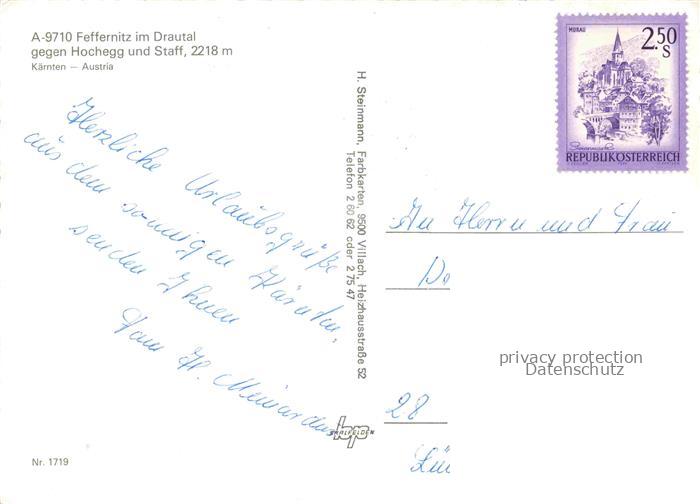 A-9710 Feffernitz im Drautal
gegen Hochegg und Staff, 2218 m
Kärnten — Austria
Herzliche Urlaubsgrüße
aus dem sonnigen Kärnten,
senden Ihnen
Fam. H.
Nr. 1719
H. Steinmann, Farbkarten, 9500 Villach, Heizhausstraße 52
Telefon 2 60 62 oder 2 75 47
SAALFELDEN
MURAU
2.50
S
REPUBLIK ÖSTERREICH
An Herrn und Frau
De
privacy protection
Datenschutz
28
Lü